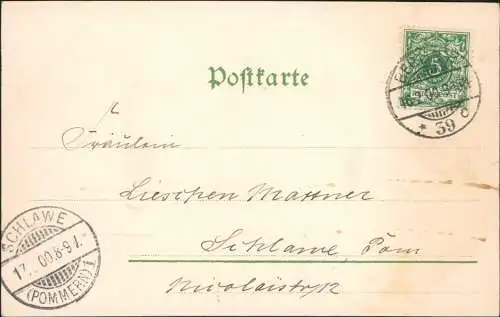 Postkarte
5
16.2.00.8-9
* 39 c
Fräulein
Lieschen Massner
Schlawe, Pom
Nicolaistr 12
SCHLAWE
17. .00.8-9
(POMMERN) 1